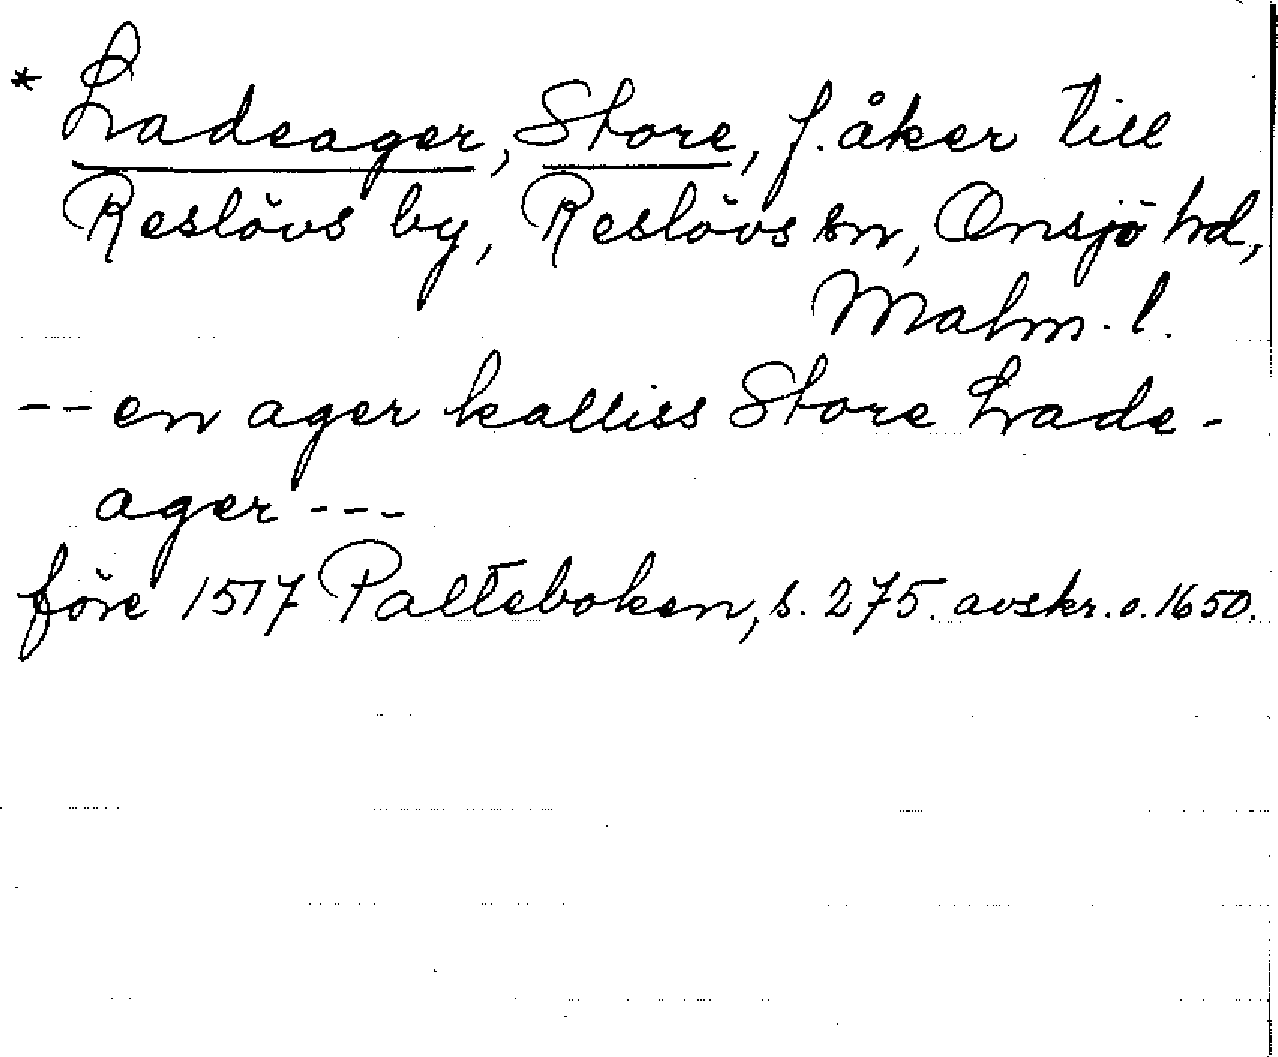 * Ladeager, Store, f. åker till
Reslövs by, Reslövs sn, Onsjö hd,
Malm. l.
-- en ager kalliss Store Lade-
ager ---
före 1517 Palteboken, s. 275. avskr. o. 1650.